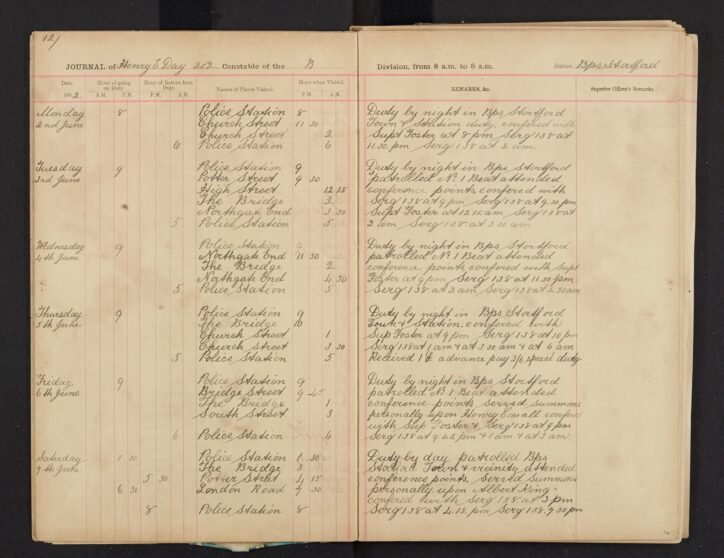 121
JOURNAL of Henry E Day 203 Constable of the B Division, from 8 a.m. to 8 a.m. Station Bps Stortford
Date. Hour of going on Duty. Hour of Return from Duty. Names of Places Visited. Hour when Visited. REMARKS, &c. Superior Officer's Remarks.
190 2 A.M. P.M. P.M. A.M. P.M. A.M.
Monday 8 Police Station 8 Duty by night in Bps Stortford
2nd June Church Street 11 30 Town & Station duty. confered with
Church Street 2 Supt Foster at 8 pm Serg 138 at
6 Police Station 6 11.30 pm Serg 138 at 2 am.
Tuesday 9 Police Station 9 Duty by night in Bps Stortford
3rd June Potter Street 9 30 patrolled No 1 Beat attended
High Street 12 15 conference points confered with
The Bridge 2 Serg 138 at 9 pm Serg 138 at 9.30 pm
Northgate End 3 30 Supt Foster at 12.15 am Serg 138 at
5 Police Station 5 2 am Serg 138 at 3.30 am
Wednesday 9 Police Station 9 Duty by night in Bps Stortford
4th June Northgate End 11 30 patrolled No 1 Beat attended
The Bridge 2 conference points confered with Supt
Northgate End 4 30 Foster at 9 pm Serg 138 at 11.30 pm
5 Police Station 5 Serg 138 at 2 am Serg 138 at 4.30 am
Thursday 9 Police Station 9 Duty by night in Bps Stortford
5th June The Bridge 10 Town & Station. confered with
Church Street 1 Sup Foster at 9 pm Serg 138 at 10 pm
Church Street 3 30 Serg 138 at 1 am & at 3.30 am & at 5 am
5 Police Station 5 Received 1£ advance pay 2/6 special duty
Friday 9 Police Station 9 Duty by night in Bps Stortford
6th June Bridge Street 9 45 patrolled No 1 Beat attended
The Bridge 1 conference points served Summons
South Street 3 personally upon Henry confered
with Sup Foster & Serg 138 at 9 pm
6 Police Station 6 Serg 138 at 9.45 pm & 1 am & at 3 am.
Saturday 1 30 Police Station 1 30 Duty by day patrolled Bps
7th June The Bridge 3 Stortford Town & vicinity attended
5 30 Potter Street 4 15 conference points. Served Summons
6 30 London Road 7 30 personally upon Albert King
confered with Serg 138 at 3 pm
8 Police Station 8 Serg 138 at 4.15. pm Serg 138. 7.30 pm